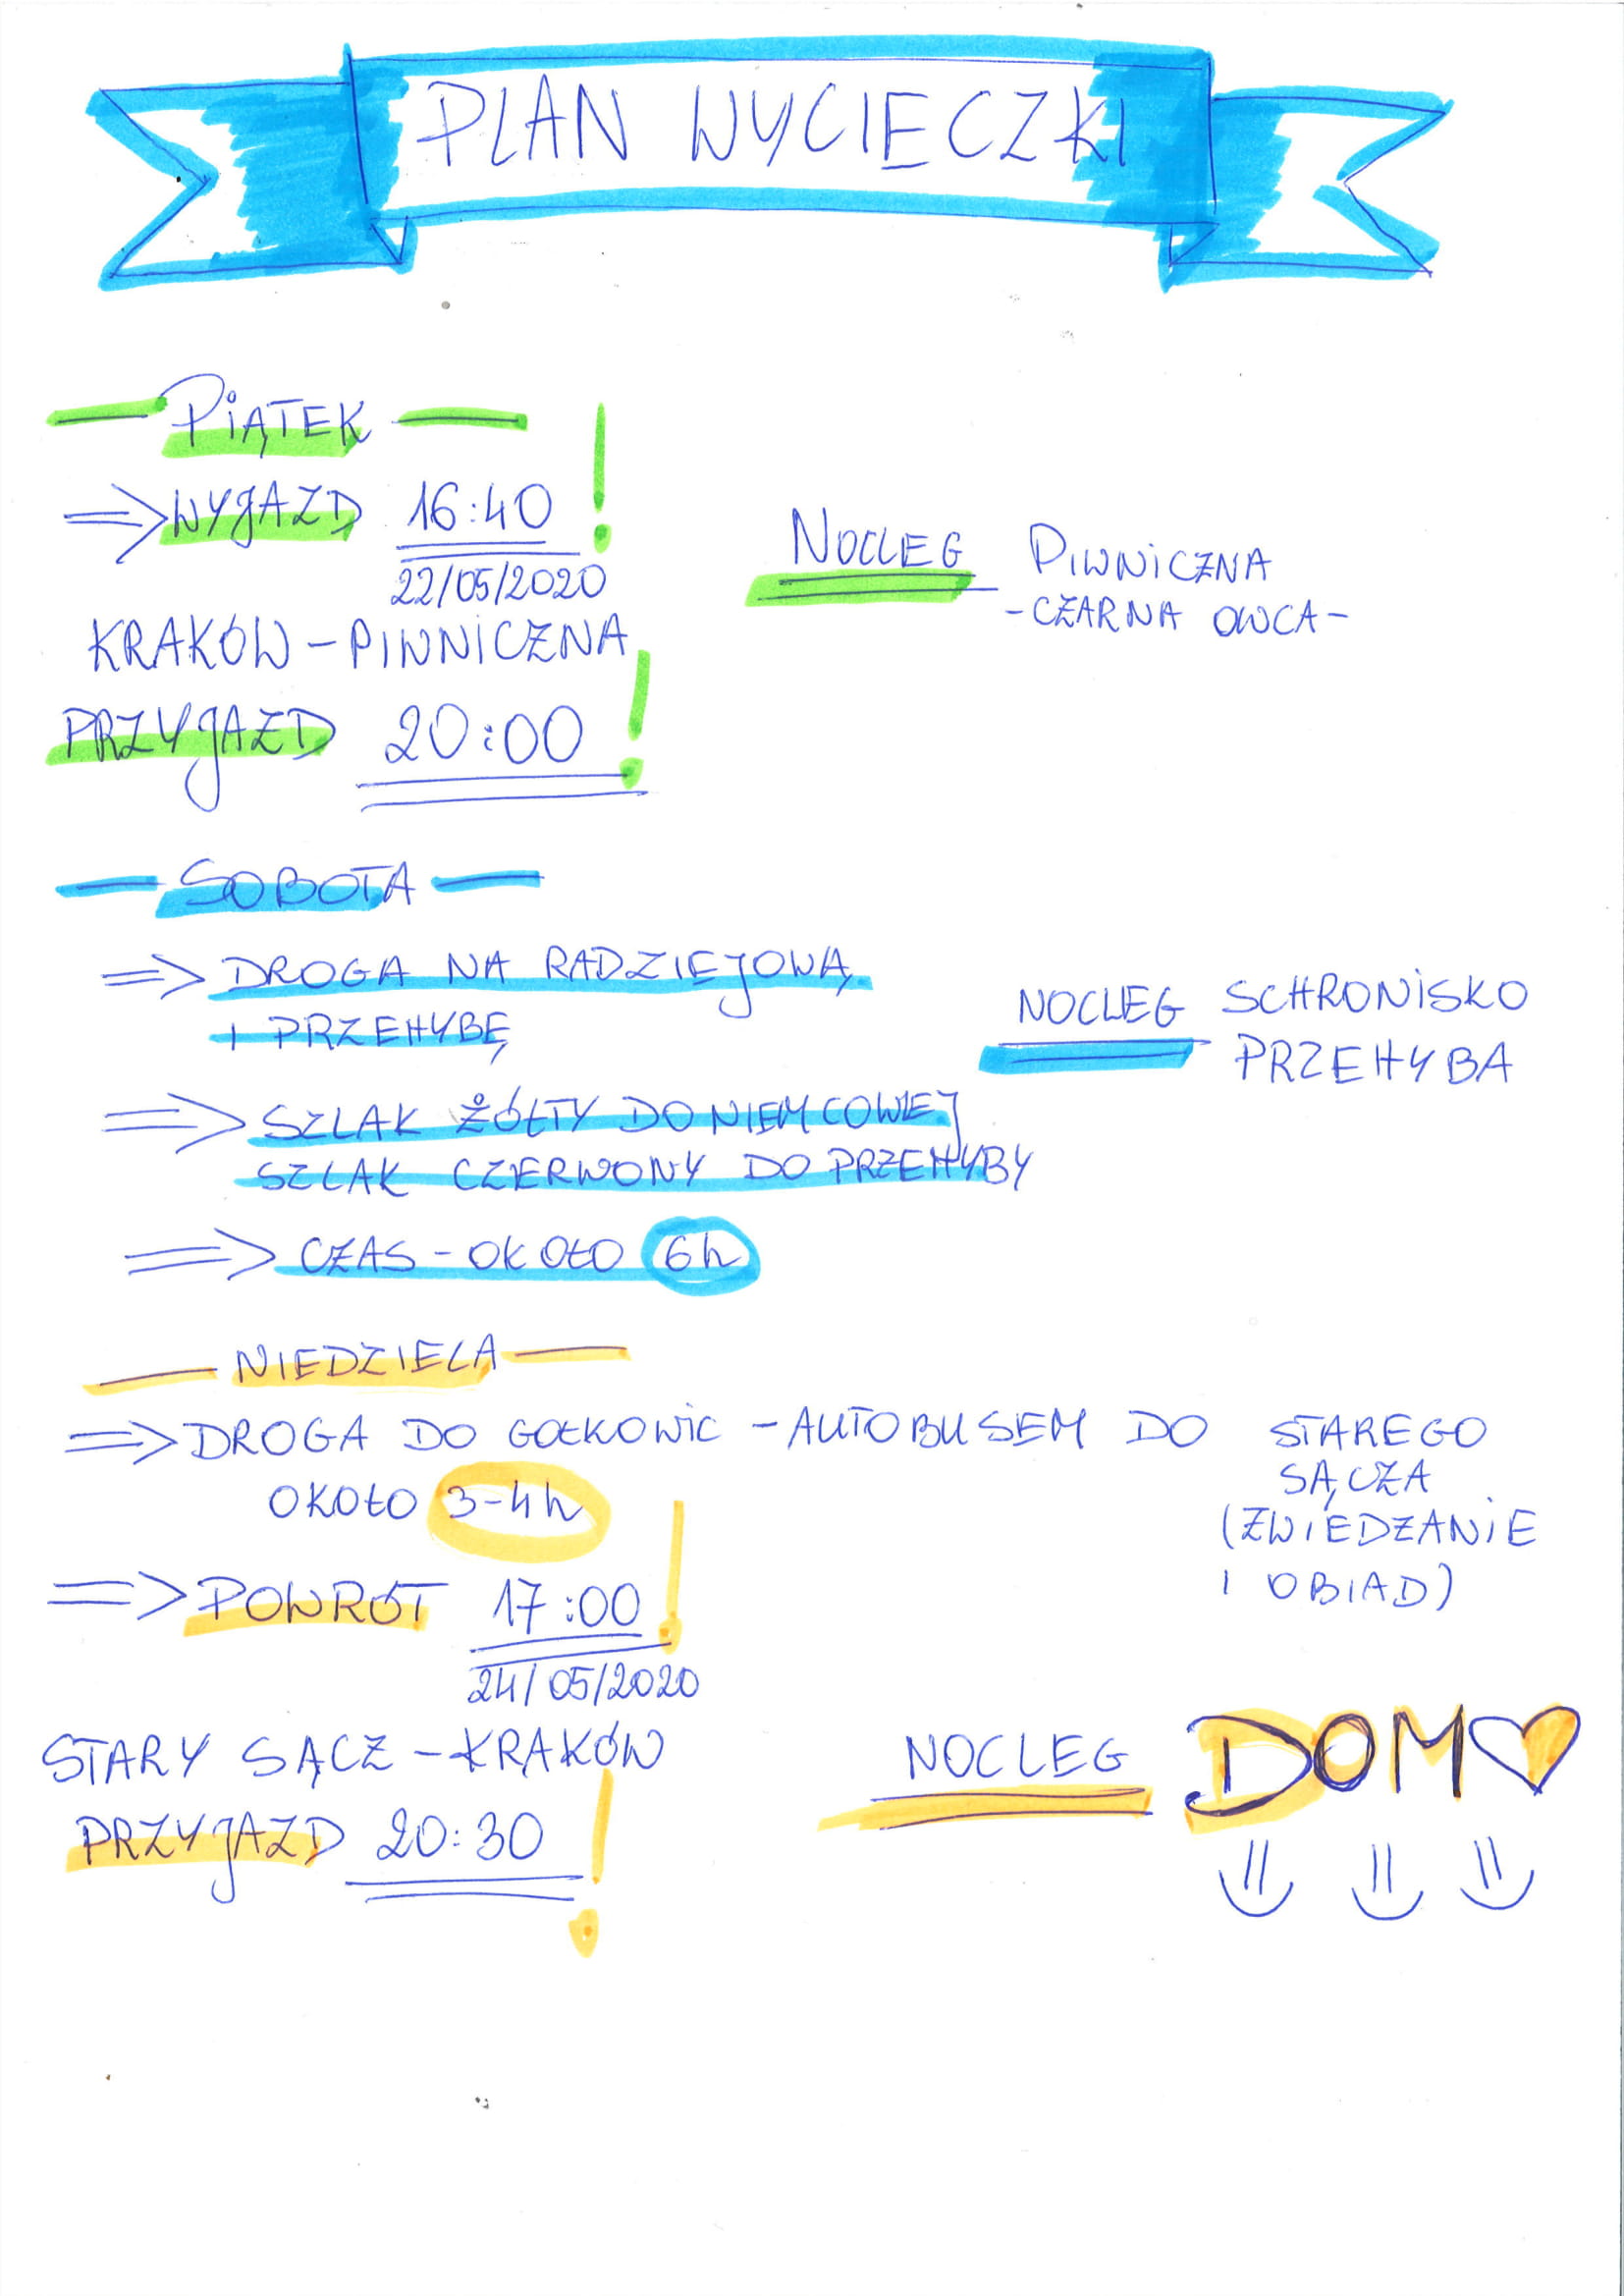 PLAN WYCIECZKI
PIĄTEK
=> WYJAZD 16:40 !
22/05/2020
KRAKÓW - PIWNICZNA
PRZYJAZD 20:00 !
NOCLEG PIWNICZNA
- CZARNA OWCA -
SOBOTA
=> DROGA NA RADZIEJOWĄ
I PRZEHYBĘ
NOCLEG SCHRONISKO
PRZEHYBA
=> SZLAK ŻÓŁTY DO NIEMCOWEJ
SZLAK CZERWONY DO PRZEHYBY
=> CZAS - OKOŁO 6h
NIEDZIELA
=> DROGA DO GOŁKOWIC - AUTOBUSEM DO STAREGO
SĄCZA
(ZWIEDZANIE
I OBIAD)
OKOŁO 3-4h
=> POWRÓT 17:00 !
24/05/2020
STARY SĄCZ - KRAKÓW
PRZYJAZD 20:30 !
NOCLEG DOM